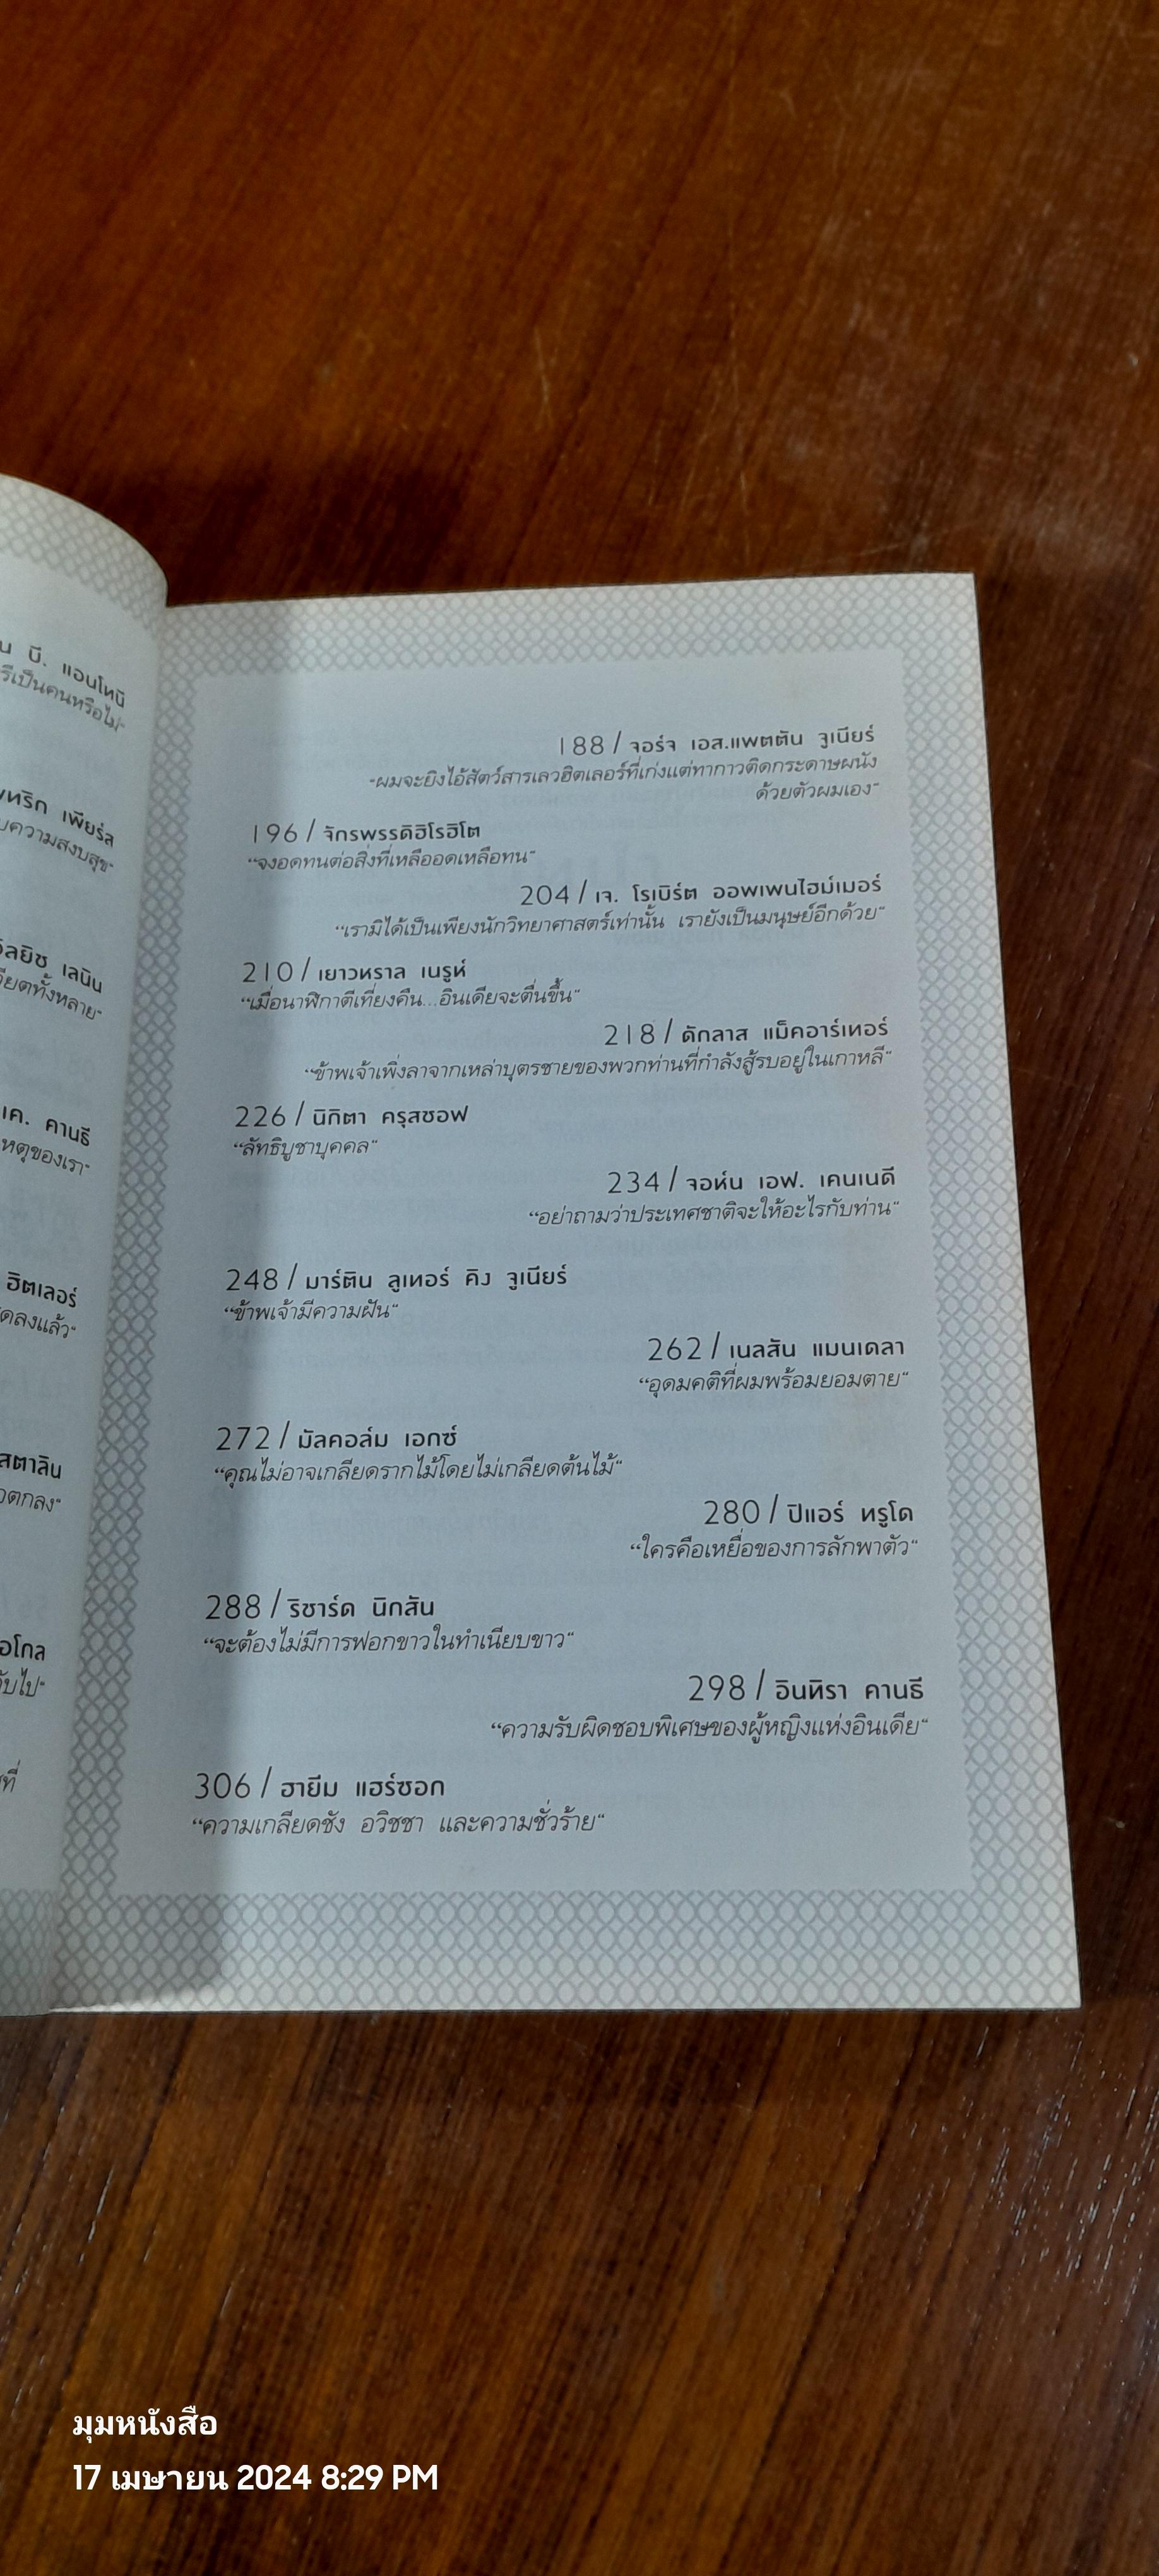 น บี. แอนโทนี
รีเป็นคนหรือไม่"
ทริก เพียร์ส
ความสงบสุข"
ลยิช เลนิน
ียดทั้งหลาย"
เค. คานธี
หตุของเรา"
ฮิตเลอร์
ดลงแล้ว"
สตาลิน
วตกลง"
อโกล
ับไป"
ที่
188 / จอร์จ เอส.แพตตัน จูเนียร์
"ผมจะยิงไอ้สัตว์สารเลวฮิตเลอร์ที่เก่งแต่ทากาวติดกระดาษผนัง
ด้วยตัวผมเอง"
196 / จักรพรรดิฮิโรฮิโต
"จงอดทนต่อสิ่งที่เหลืออดเหลือทน"
204 / เจ. โรเบิร์ต ออพเพนไฮม์เมอร์
"เรามิได้เป็นเพียงนักวิทยาศาสตร์เท่านั้น เรายังเป็นมนุษย์อีกด้วย"
210 / เยาวหราล เนรูห์
"เมื่อนาฬิกาตีเที่ยงคืน...อินเดียจะตื่นขึ้น"
218 / ดักลาส แม็คอาร์เทอร์
"ข้าพเจ้าเพิ่งลาจากเหล่าบุตรชายของพวกท่านที่กำลังสู้รบอยู่ในเกาหลี"
226 / นิกิตา ครุสชอฟ
"ลัทธิบูชาบุคคล"
234 / จอห์น เอฟ. เคนเนดี
"อย่าถามว่าประเทศชาติจะให้อะไรกับท่าน"
248 / มาร์ติน ลูเทอร์ คิง จูเนียร์
"ข้าพเจ้ามีความฝัน"
262 / เนลสัน แมนเดลา
"อุดมคติที่ผมพร้อมยอมตาย"
272 / มัลคอล์ม เอกซ์
"คุณไม่อาจเกลียดรากไม้โดยไม่เกลียดต้นไม้"
280 / ปิแอร์ ทรูโด
"ใครคือเหยื่อของการลักพาตัว"
288 / ริชาร์ด นิกสัน
"จะต้องไม่มีการฟอกขาวในทำเนียบขาว"
298 / อินทิรา คานธี
"ความรับผิดชอบพิเศษของผู้หญิงแห่งอินเดีย"
306 / ฮายีม แฮร์ซอก
"ความเกลียดชัง อวิชชา และความชั่วร้าย"
มุมหนังสือ
17 เมษายน 2024 8:29 PM